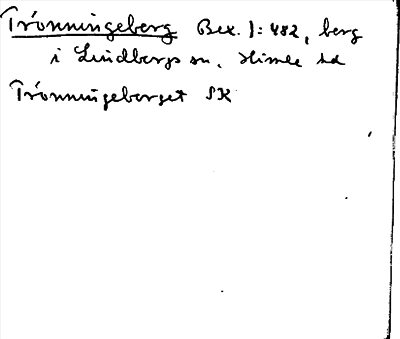 Trönningeberg Bex. 1:482, berg
i Lindbergs sn, Himle hd
Trönningeberget SK